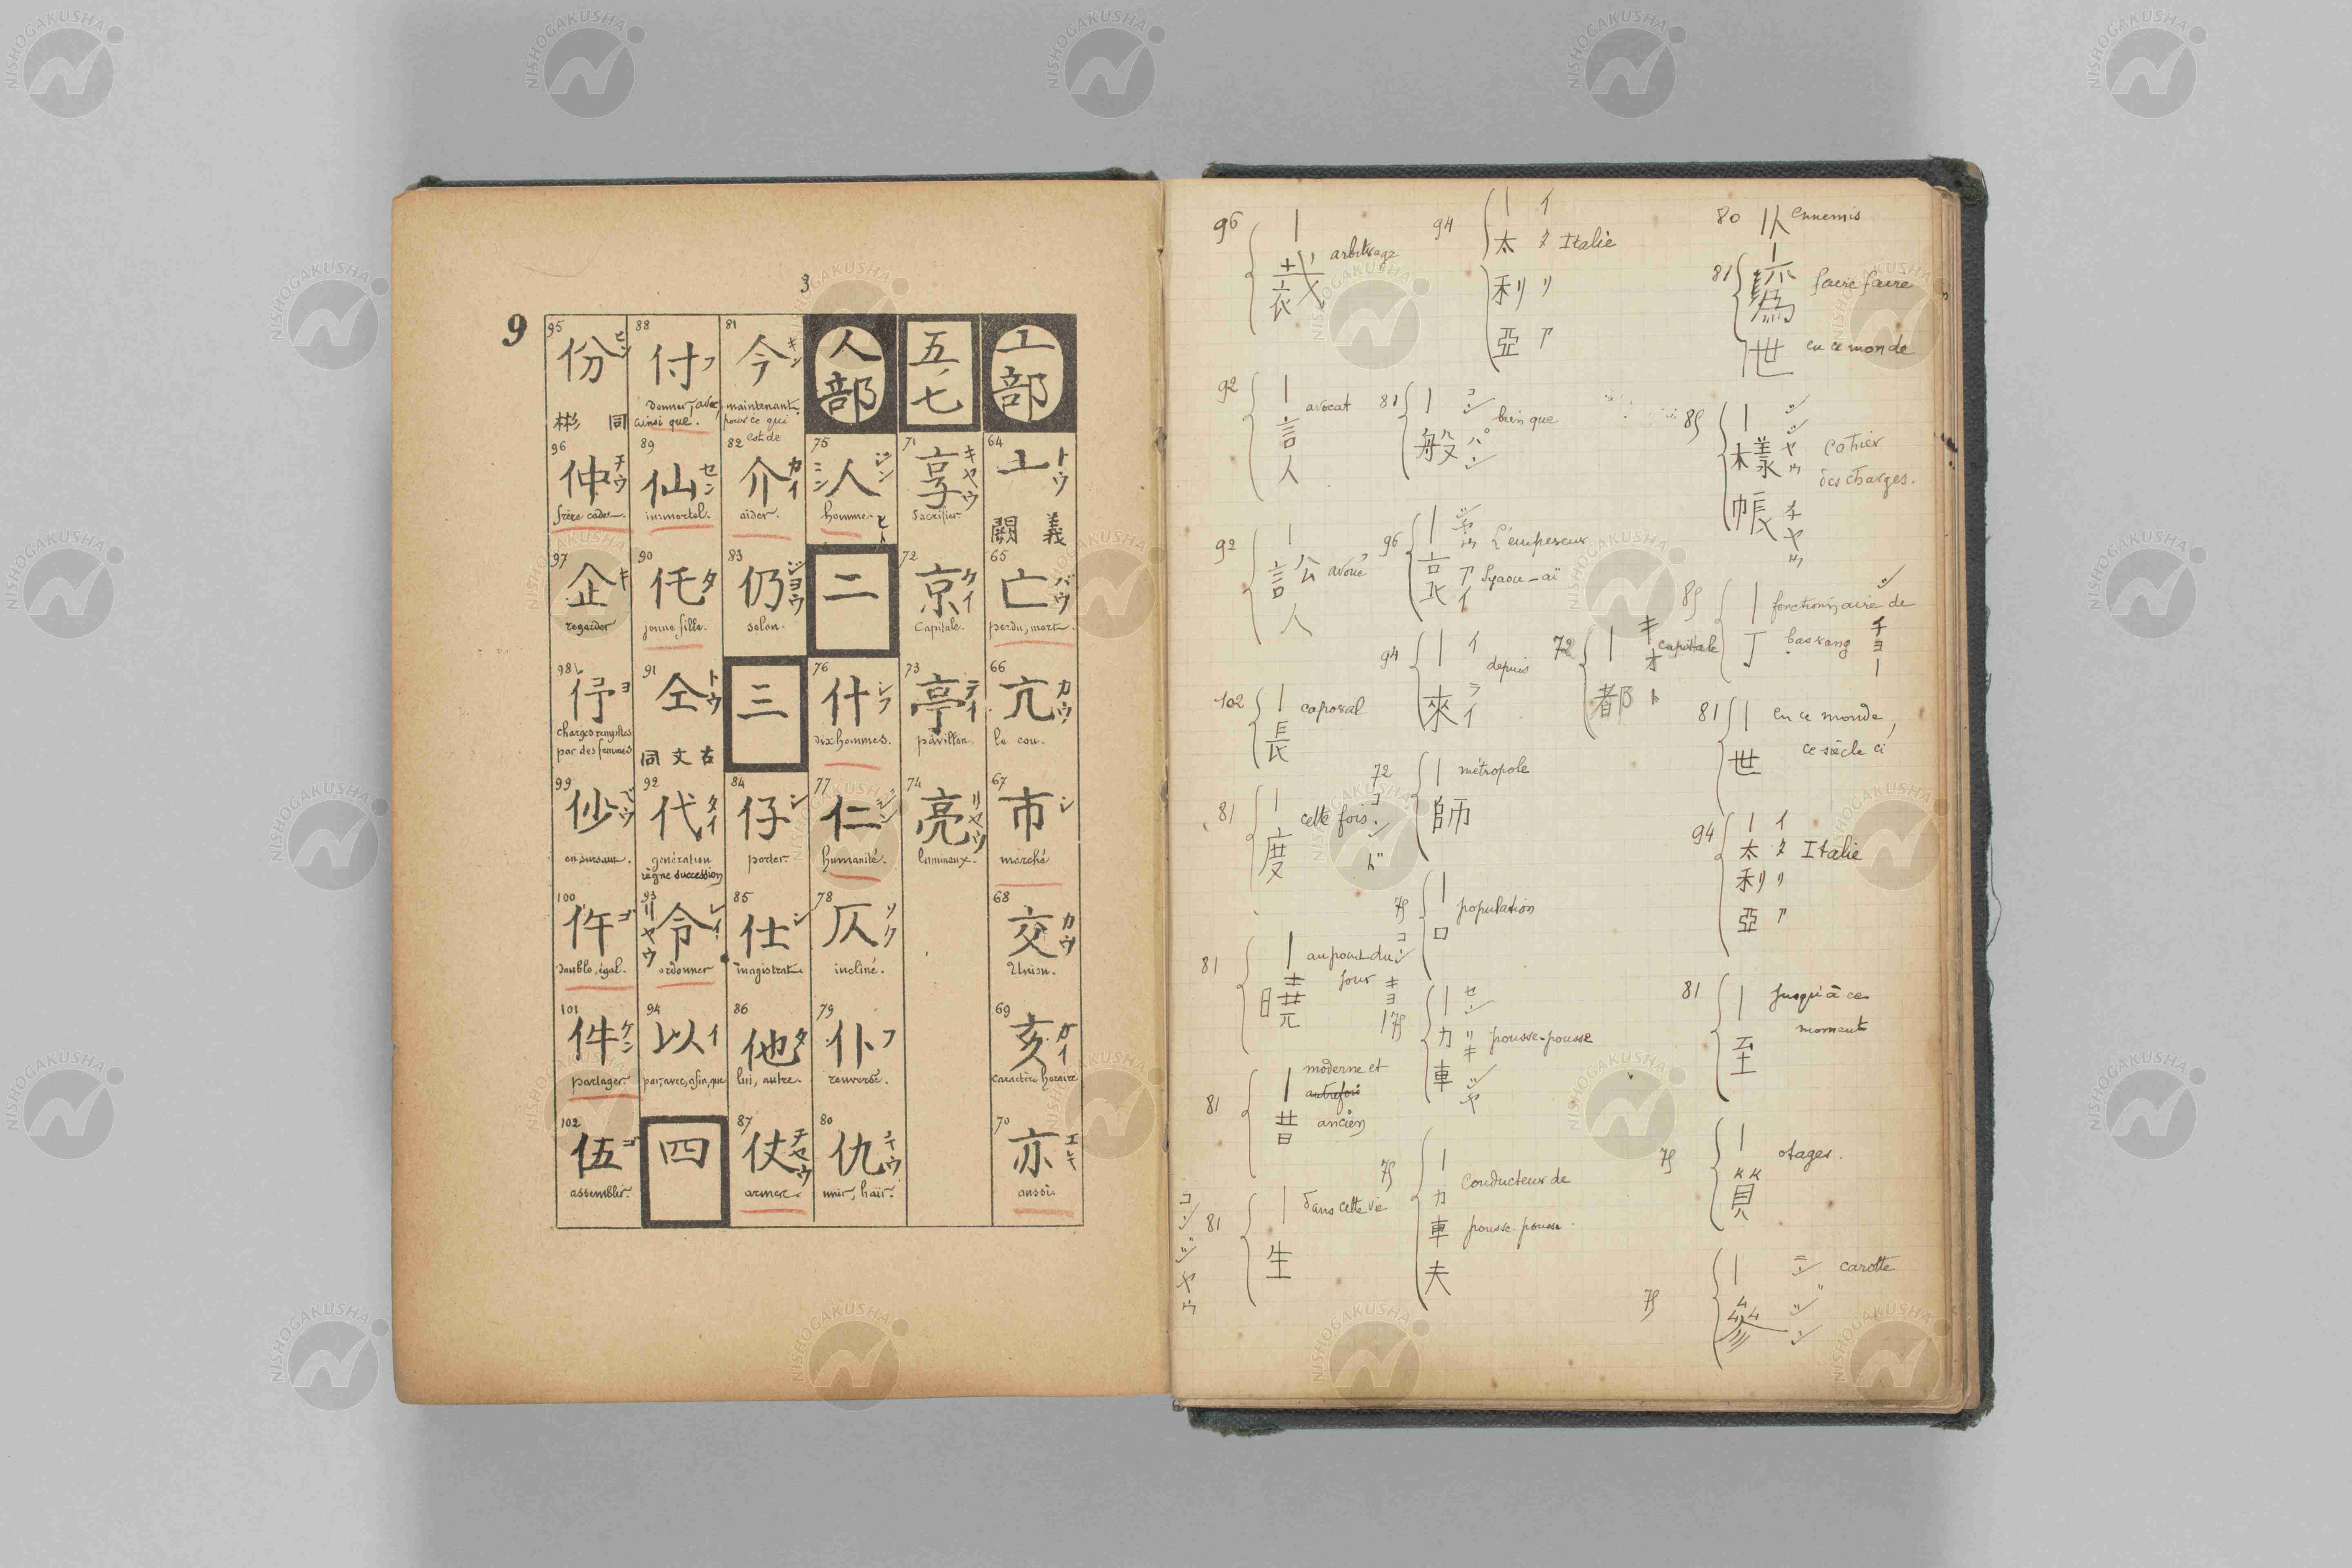 3
9
亠部
64 亠 トウ
義 闕
65 亡 バウ
perdu, mort.
66 亢 カウ
le cou.
67 市 シ
marché
68 交 カウ
Union.
69 亥 ガイ
Caractère horaire
70 亦 エキ
aussi.
五、七
71 享 キヤウ
Sacrifier.
72 京 ケイ
Capitale.
73 亭 テイ
pavillon.
74 亮 リヤウ
lumineux.
人部
75 人 ジン ニン ヒト
homme.
二
76 什 シフ
dix hommes.
77 仁 ジン
humanité.
78 仄 ソク
incliné.
79 仆 フ
renversé.
80 仇
unir, haïr.
81 今 キン
maintenant.
pour ce qui
est de
82 介 カイ
aider.
83 仍 ジヨウ
selon.
三
84 仔 シ
porter.
85 仕 シ
magistrat.
86 他 タ
lui, autre.
87 仗 チヤウ
armer.
88 付 フ
donner, avec
ainsi que.
89 仙 セン
immortel.
90 仛 タ
jeune fille.
91 仝 トウ
古文同
92 代 タイ
génération
règne succession
93 令 レイ リヤウ
ordonner
94 以 イ
par, avec, afin, que
四
95 份 ヒン
同 彬
96 仲 チウ
frère cadet.
97 企 キ
regarder
98 伃 ヨ
charges remplies
par des femmes
99 仯
en sursaut.
100 仵 ゴ
double, égal.
101 件 ケン
partager
102 伍 ゴ
assembler.
96 | 裁 arbitrage
92 | 言人 avocat
92 | 訟人 avoué
102 | 長 caporal
81 | 度 cette fois. コンド
81 | 暁 au point du
jour コン キヨー
81 | 昔 moderne et
autrefois
ancien
81 | 生 dans cette vie コンジヤウ
94 | 太利亞 イタリア Italie
81 | 般 コンパン bien que
96 | L'empereur
アイ
94 | 來 イライ depuis
72 | 都 キオト capitale
72 | 師 métropole
75 | 口 population
75 | 力車 リキ pousse-pousse
75 | 力車夫 Conducteur de
pousse-pousse.
80 仇 ennemis
81 | faire faire
世 en ce monde
85 | 様帳 シヤウ チヤウ Cahier
des charges.
85 | 丁 fonctionnaire de
bas rang チヨー
81 | 世 en ce monde,
ce siècle ci
94 | 太利亞 イタリア Italie
81 | 至 jusqu'à ce
moment
75 | 質 otages.
75 | 參 ニンジン carotte
NISHOGAKUSHA